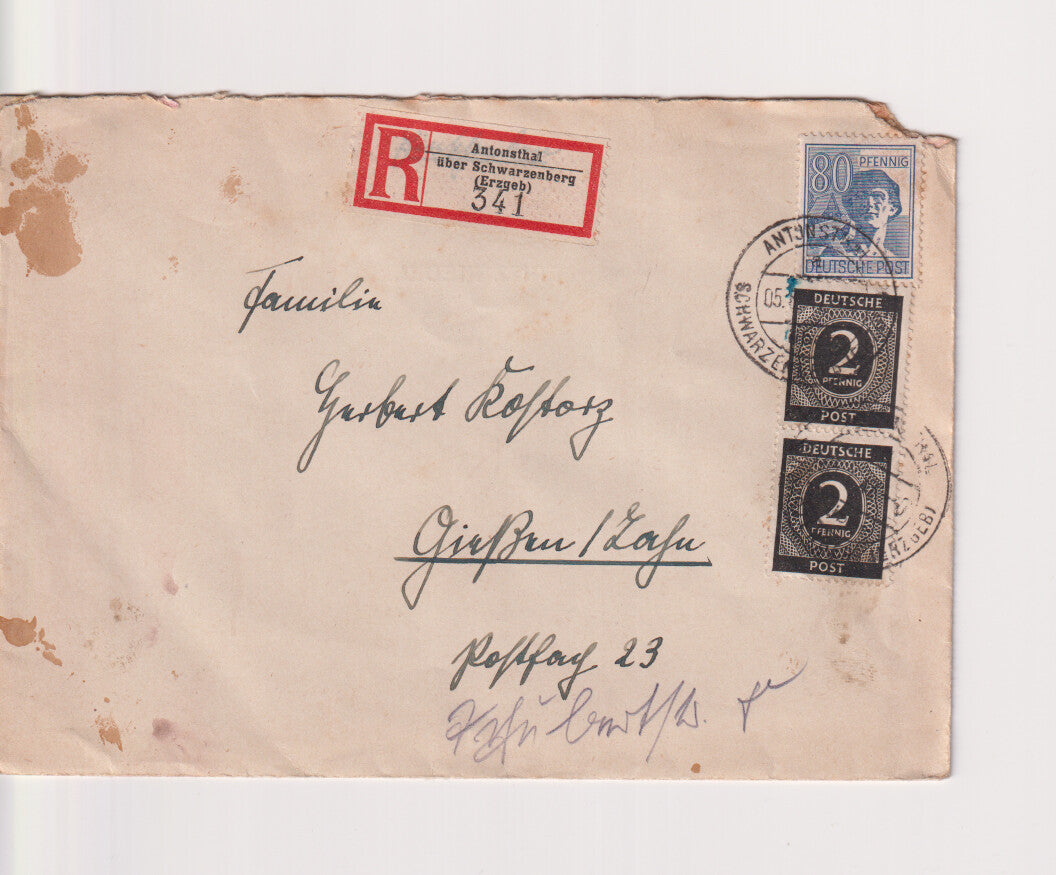 R
Antonsthal
über Schwarzenberg
(Erzgeb)
341
80 PFENNIG
DEUTSCHE POST
ANTONSTHAL
05.
SCHWARZEN
DEUTSCHE
2
PFENNIG
POST
DEUTSCHE
2
PFENNIG
POST
ERZGEB)
Familie
Herbert Kostorz
Gießen / Lahn
Postfach 23
Schubertstr.